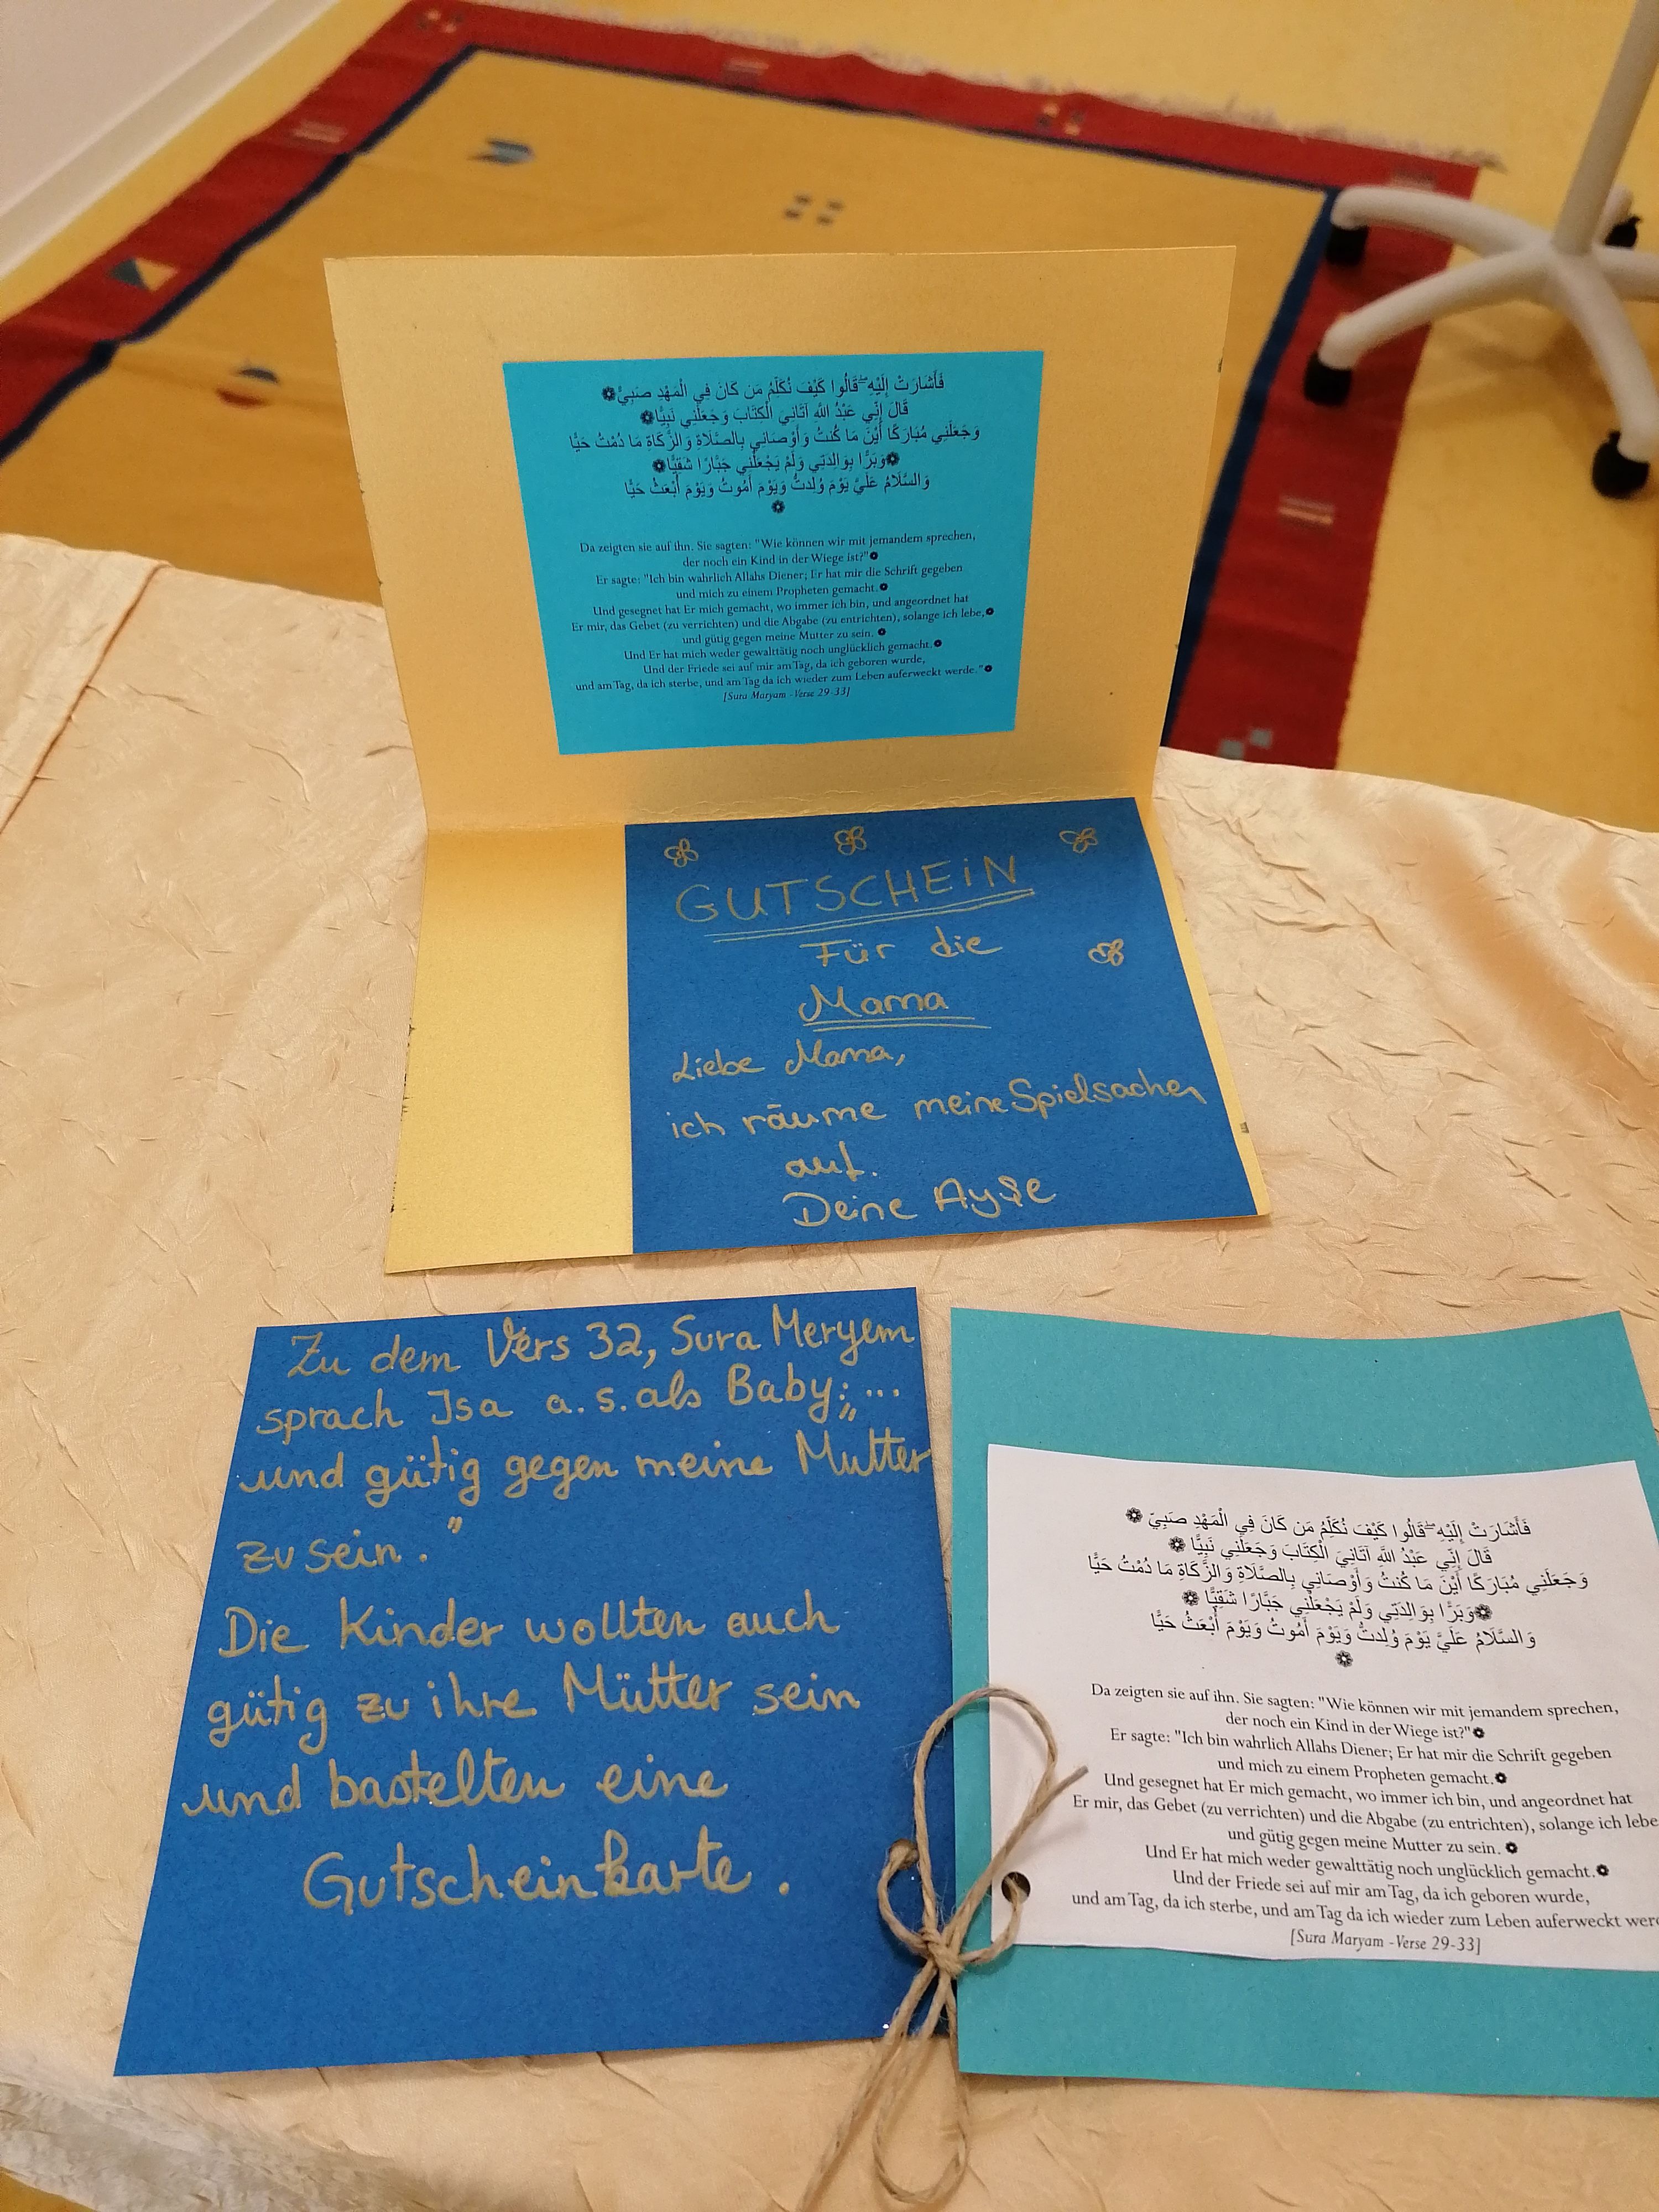 فَأَشَارَتْ إِلَيْهِ ۖ قَالُوا كَيْفَ نُكَلِّمُ مَن كَانَ فِي الْمَهْدِ صَبِيًّا❁
قَالَ إِنِّي عَبْدُ اللَّهِ آتَانِيَ الْكِتَابَ وَجَعَلَنِي نَبِيًّا❁
وَجَعَلَنِي مُبَارَكًا أَيْنَ مَا كُنتُ وَأَوْصَانِي بِالصَّلَاةِ وَالزَّكَاةِ مَا دُمْتُ حَيًّا
❁وَبَرًّا بِوَالِدَتِي وَلَمْ يَجْعَلْنِي جَبَّارًا شَقِيًّا❁
وَالسَّلَامُ عَلَيَّ يَوْمَ وُلِدتُّ وَيَوْمَ أَمُوتُ وَيَوْمَ أُبْعَثُ حَيًّا
❁
Da zeigten sie auf ihn. Sie sagten: "Wie können wir mit jemandem sprechen,
der noch ein Kind in der Wiege ist?"❁
Er sagte: "Ich bin wahrlich Allahs Diener; Er hat mir die Schrift gegeben
und mich zu einem Propheten gemacht.❁
Und gesegnet hat Er mich gemacht, wo immer ich bin, und angeordnet hat
Er mir, das Gebet (zu verrichten) und die Abgabe (zu entrichten), solange ich lebe,❁
und gütig gegen meine Mutter zu sein. ❁
Und Er hat mich weder gewalttätig noch unglücklich gemacht.❁
Und der Friede sei auf mir am Tag, da ich geboren wurde,
und am Tag, da ich sterbe, und am Tag da ich wieder zum Leben auferweckt werde."❁
[Sura Maryam -Verse 29-33]
GUTSCHEiN
Für die
Mama
Liebe Mama,
ich räume meine Spielsachen
auf.
Deine Ayşe
Zu dem Vers 32, Sura Meryem
sprach Isa a.s. als Baby: „...
und gütig gegen meine Mutter
zu sein."
Die Kinder wollten auch
gütig zu ihre Mütter sein
und bastelten eine
Gutscheinkarte.
فَأَشَارَتْ إِلَيْهِ ۖ قَالُوا كَيْفَ نُكَلِّمُ مَن كَانَ فِي الْمَهْدِ صَبِيًّا ❁
قَالَ إِنِّي عَبْدُ اللَّهِ آتَانِيَ الْكِتَابَ وَجَعَلَنِي نَبِيًّا ❁
وَجَعَلَنِي مُبَارَكًا أَيْنَ مَا كُنتُ وَأَوْصَانِي بِالصَّلَاةِ وَالزَّكَاةِ مَا دُمْتُ حَيًّا
❁وَبَرًّا بِوَالِدَتِي وَلَمْ يَجْعَلْنِي جَبَّارًا شَقِيًّا ❁
وَالسَّلَامُ عَلَيَّ يَوْمَ وُلِدتُّ وَيَوْمَ أَمُوتُ وَيَوْمَ أُبْعَثُ حَيًّا
❁
Da zeigten sie auf ihn. Sie sagten: "Wie können wir mit jemandem sprechen,
der noch ein Kind in der Wiege ist?"❁
Er sagte: "Ich bin wahrlich Allahs Diener; Er hat mir die Schrift gegeben
und mich zu einem Propheten gemacht.❁
Und gesegnet hat Er mich gemacht, wo immer ich bin, und angeordnet hat
Er mir, das Gebet (zu verrichten) und die Abgabe (zu entrichten), solange ich lebe
und gütig gegen meine Mutter zu sein. ❁
Und Er hat mich weder gewalttätig noch unglücklich gemacht.❁
Und der Friede sei auf mir am Tag, da ich geboren wurde,
und am Tag, da ich sterbe, und am Tag da ich wieder zum Leben auferweckt wer
[Sura Maryam -Verse 29-33]